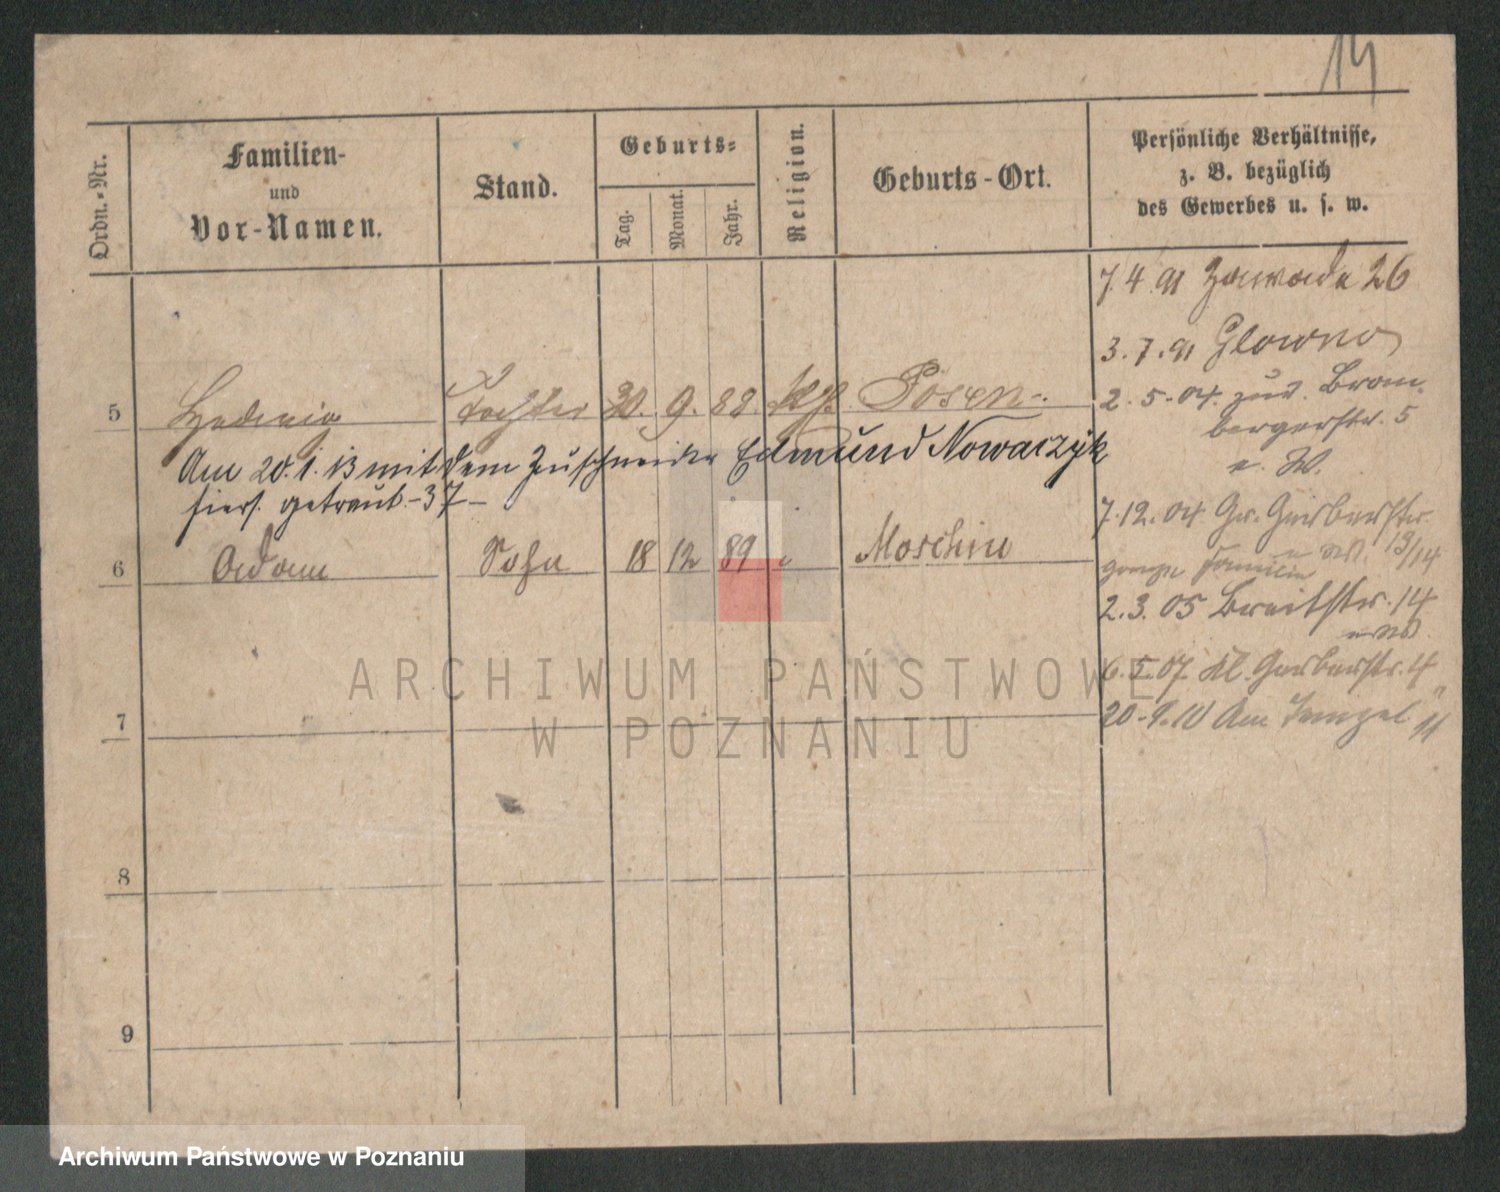 14
Ordn.-Nr.
Familien-
und
Vor-Namen.
Stand.
Geburts-
Tag.
Monat.
Jahr.
Religion.
Geburts-Ort.
Persönliche Verhältnisse,
z. B. bezüglich
des Gewerbes u. s. w.
7.4.91 Zawade 26
3.7.91 Glowno
5 Hedwig Tochter 20. 9. 88. kth. Posen
2.5.04. zur. Brom-
bergerstr. 5
Am 20.1.13 mit dem Zuschneider Edmund Nowaczyk
hiers. getraut -37-
7.12.04 Gr. Gerberstr.
13/14
6 Adam Sohn 18 12 89 " Moschin
Familie
2.3.05 Breitestr. 14
6.5.07. Kl. Gerberstr. 4
7
20.9.10 Am Tempel 11
8
9
ARCHIWUM PAŃSTWOWE
W POZNANIU
Archiwum Państwowe w Poznaniu